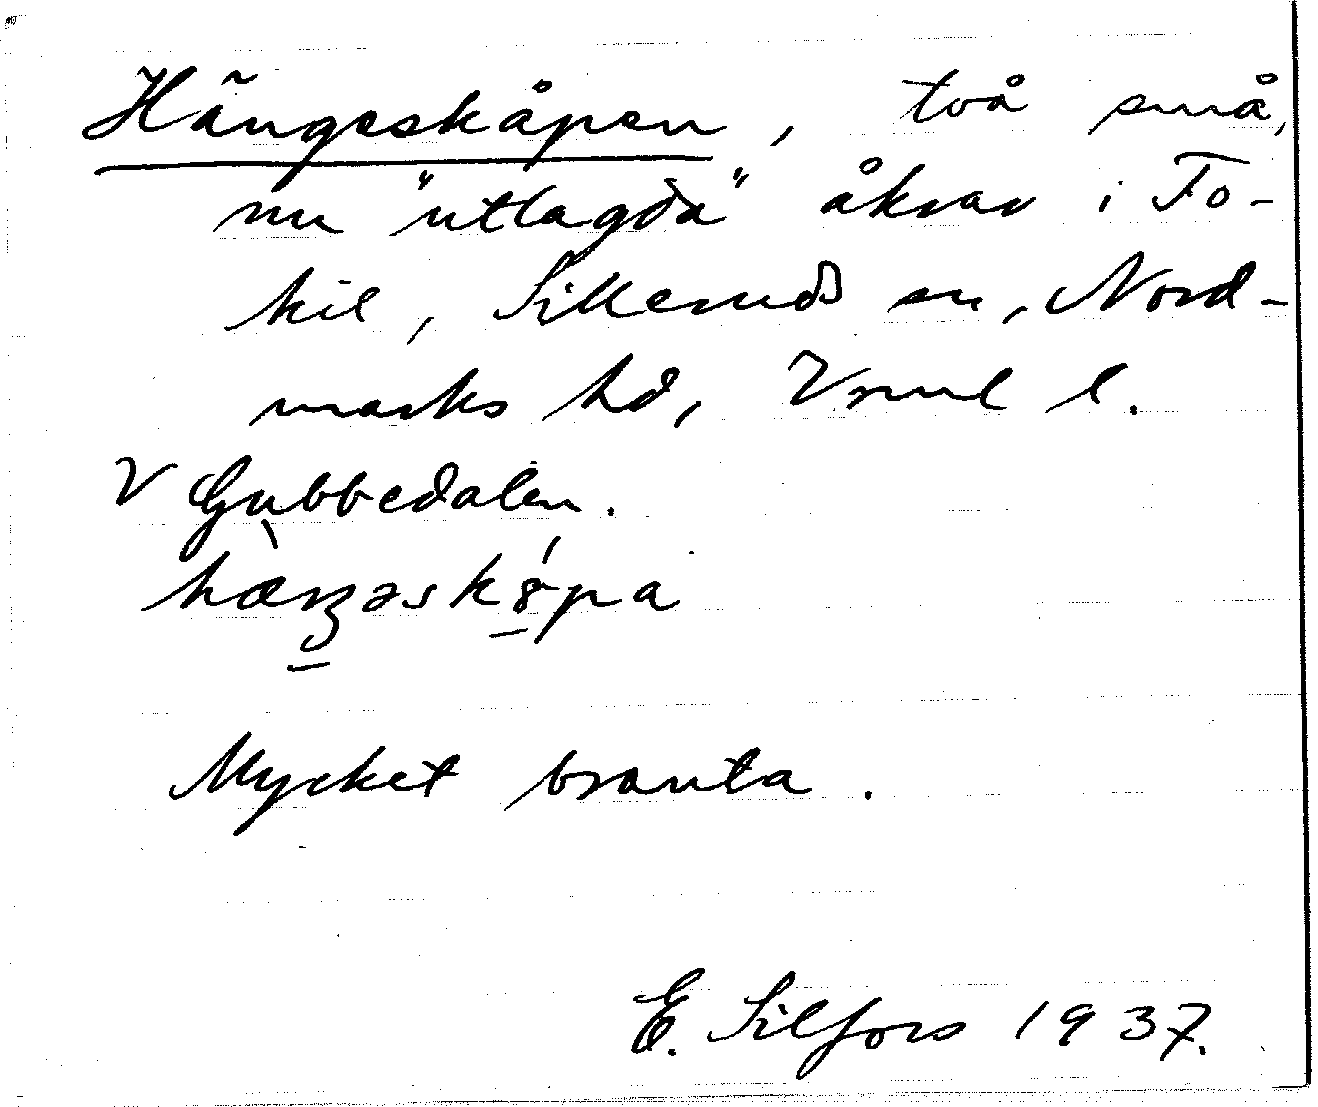 Hängeskåpen, två små,
nu "utlagda" åkrar i Fo-
kil, Silleruds sn, Nord-
marks hd, Vrml l.
V Gubbedalen.
Mycket branta.
E. Silfors 1937.